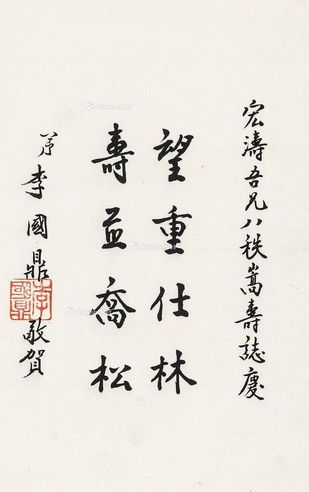 宏濤吾兄八秩嵩壽誌慶
望重仕林
壽並喬松
弟李國鼎敬賀
李國鼎